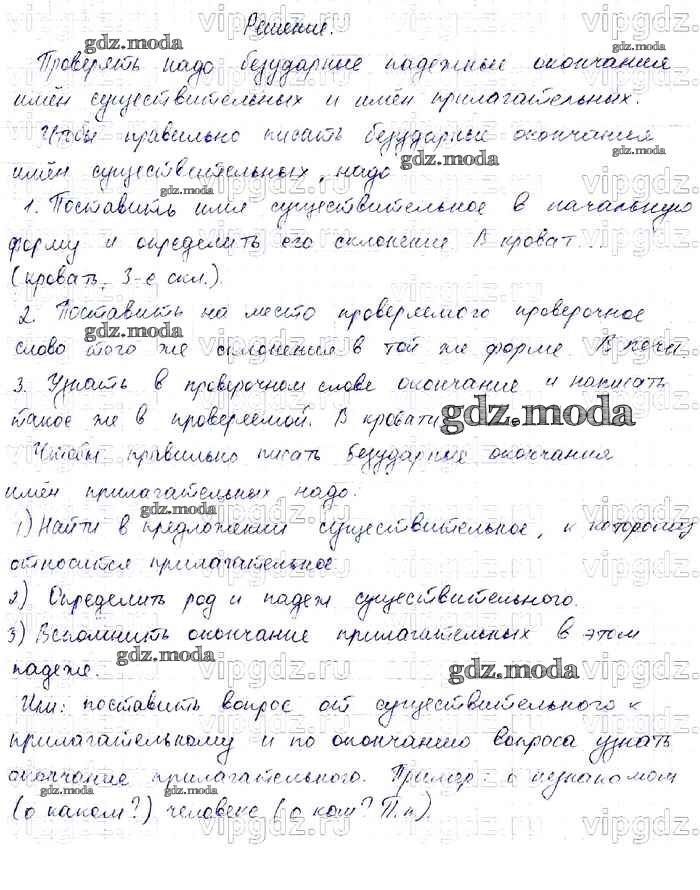 Решение.
Проверять надо безударные падежные окончания
имён существительных и имён прилагательных.
Чтобы правильно писать безударные окончания
имён существительных, надо
1. Поставить имя существительное в начальную
форму и определить его склонение. В кроват...
(кровать, 3-е скл.).
2. Поставить на место проверяемого проверочное
слово того же склонения в той же форме. В печи.
3. Узнать в проверочном слове окончание и написать
такое же в проверяемой. В кровати
Чтобы правильно писать безударные окончания
имён прилагательных надо.
1) Найти в предложении существительное, к которому
относится прилагательное
2) Определить род и падеж существительного.
3) Вспомнить окончание прилагательных в этом
падеже.
Или: поставить вопрос от существительного к
прилагательному и по окончанию вопроса узнать
окончание прилагательного. Пример: о незнакомом
(о каком?) человеке (о ком? П.п).
gdz.moda
vipgdz.ru